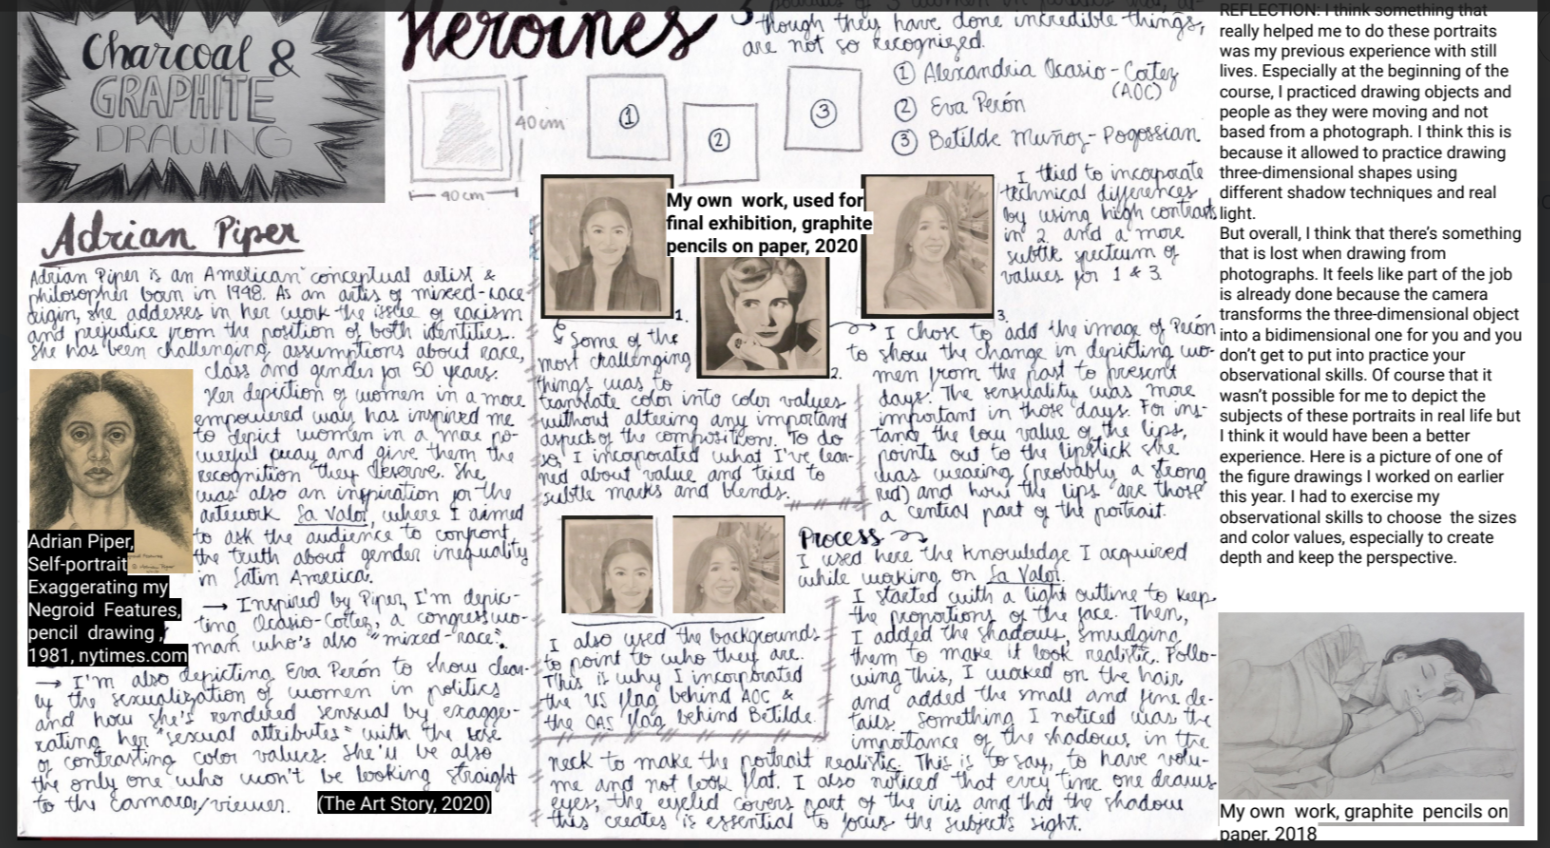 Charcoal &
GRAPHITE
DRAWING
Heroines
though they have done incredible things,
are not so recognized.
① Alexandria Ocasio-Cortez
(AOC)
② Eva Perón
③ Betilde Muñoz-Pogossian
40cm
40cm
①
②
③
Adrian Piper
Adrian Piper is an American conceptual artist &
philosopher born in 1948. As an artis of mixed-race
origin, she addresses in her work the issue of racism
and prejudice from the position of both identities.
She has been challenging assumptions about race,
class and gender for 50 years.
Her depiction of women in a more
empowered way has inspired me
to depict women in a more po-
werful way and give them the
recognition they deserve. She
was also an inspiration for the
artwork La Valor, where I aimed
to ask the audience to confront
the truth about gender inequality
in Latin America.
→ Inspired by Piper, I'm depic-
ting Ocasio-Cortez, a congresswo-
man who's also "mixed-race".
→ I'm also depicting Eva Perón to show clear-
ly the sexualization of women in politics
and how she's rendered sensual by exagge-
rating her "sexual attributes" with the use
of contrasting color values. She'll be also
the only one who won't be looking straight
to the camara/viewer.
(The Art Story, 2020)
Adrian Piper,
Self-portrait
Exaggerating my
Negroid Features,
pencil drawing ,
1981, nytimes.com
My own work, used for
final exhibition, graphite
pencils on paper, 2020
1.
2.
3.
I tried to incorporate
technical differences
by using high contrasts
in 2 and a more
subtle spectrum of
values for 1 & 3.
Some of the
most challenging
things was to
translate color into color values
without altering any important
aspects of the composition. To do
so, I incorporated what I've lear-
ned about value and tried to
subtle marks and blends.
I chose to add the image of Perón
to show the change in depicting wo-
men from the past to present
days. The sensuality was more
important in those days. For ins-
tance the low value of the lips,
points out to the lipstick she
was wearing (probably a strong
red) and how the lips are those
a central part of the portrait.
I also used the backgrounds
to point to who they are.
This is why I incorporated
the US flag behind AOC &
the OAS flag behind Betilde.
Process
I used here the knowledge I acquired
while working on La Valor.
I started with a light outline to keep
the proportions of the face. Then,
I added the shadows, smudging
them to make it look realistic. Follo-
wing this, I worked on the hair
and added the small and fine de-
tails. Something I noticed was the
importance of the shadows in the
neck to make the portrait realistic. This is to say, to have volu-
me and not look flat. I also noticed that every time one draws
eyes, the eyelid covers part of the iris and that the shadow
this creates is essential to focus the subject's sight.
REFLECTION: I think something that
really helped me to do these portraits
was my previous experience with still
lives. Especially at the beginning of the
course, I practiced drawing objects and
people as they were moving and not
based from a photograph. I think this is
because it allowed to practice drawing
three-dimensional shapes using
different shadow techniques and real
light.
But overall, I think that there's something
that is lost when drawing from
photographs. It feels like part of the job
is already done because the camera
transforms the three-dimensional object
into a bidimensional one for you and you
don't get to put into practice your
observational skills. Of course that it
wasn't possible for me to depict the
subjects of these portraits in real life but
I think it would have been a better
experience. Here is a picture of one of
the figure drawings I worked on earlier
this year. I had to exercise my
observational skills to choose the sizes
and color values, especially to create
depth and keep the perspective.
My own work, graphite pencils on
paper, 2018